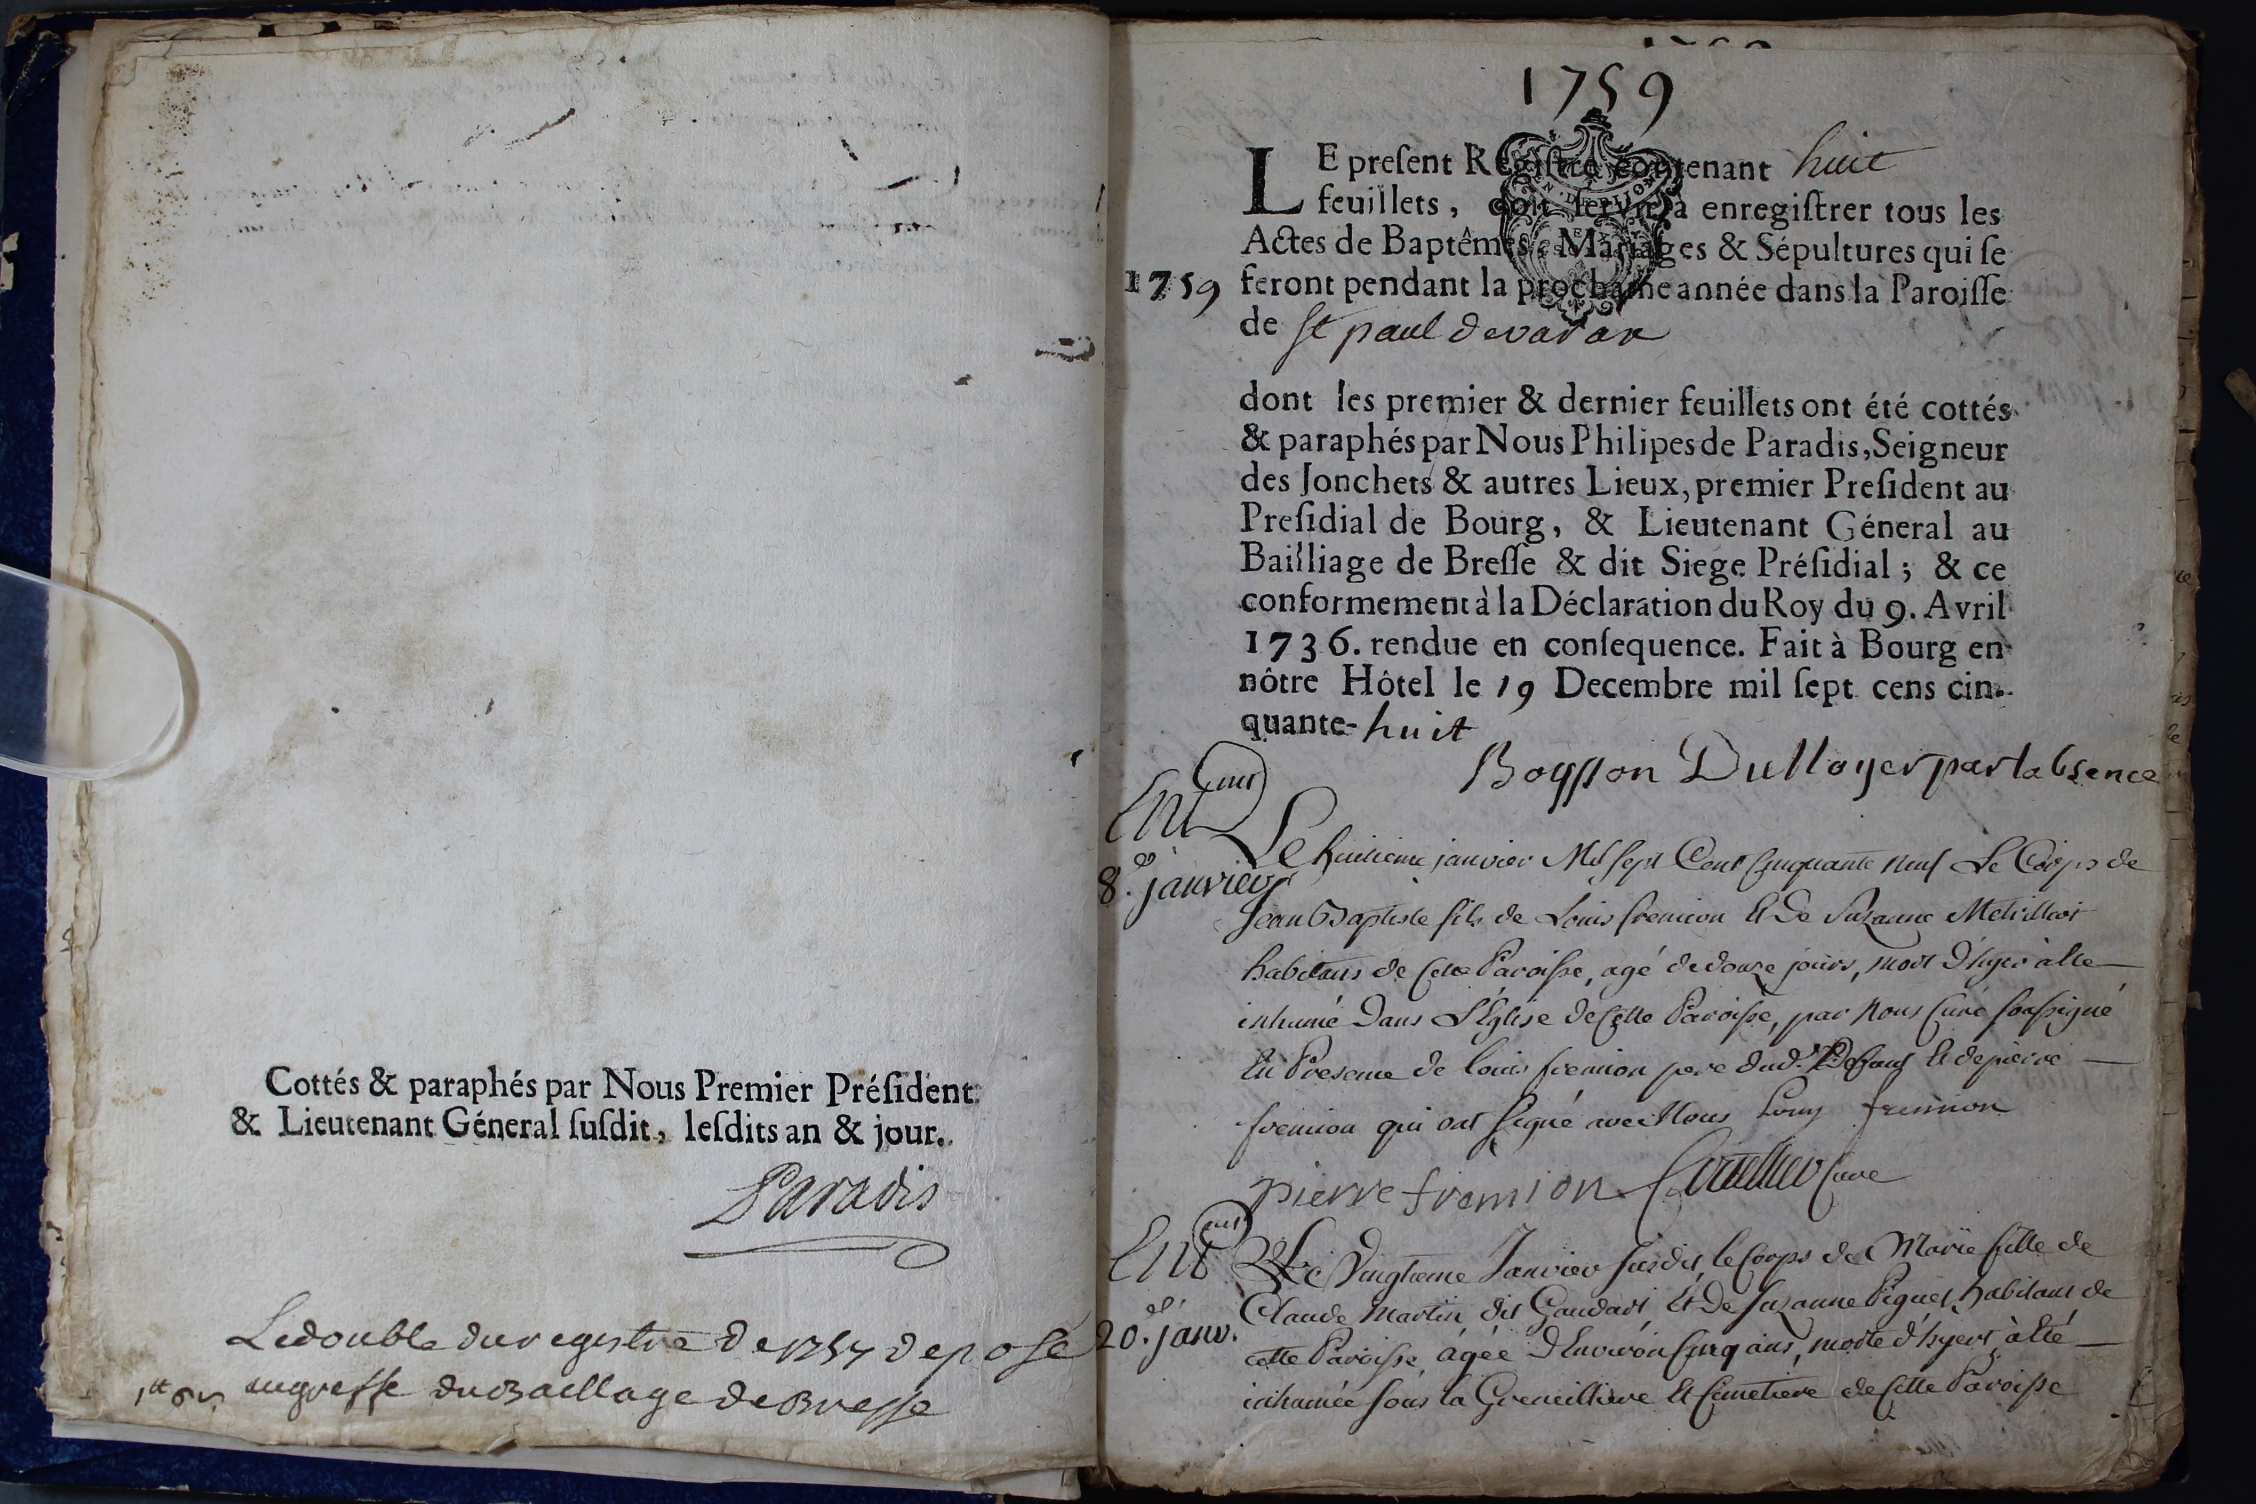 Cottés & paraphés par Nous Premier Préſident
& Lieutenant Géneral ſuſdit, leſdits an & jour.
Paradis
Ledouble du registre de 1757 deposé
au greffe du Baillage de Bresse
1759
LE preſent Regiſtre contenant huit
feuillets, doit ſervir à enregiſtrer tous les
Actes de Baptêmes, Mariages & Sépultures qui ſe
1759 feront pendant la prochaine année dans la Paroiſſe
de St paul de varax
dont les premier & dernier feuillets ont été cottés
& paraphés par Nous Philipes de Paradis, Seigneur
des Jonchets & autres Lieux, premier Preſident au
Preſidial de Bourg, & Lieutenant Géneral au
Bailliage de Breſſe & dit Siege Préſidial ; & ce
conformement à la Déclaration du Roy du 9. Avril
1736. rendue en conſequence. Fait à Bourg en
nôtre Hôtel le 19 Decembre mil ſept cens cin-
quante-huit
par labsence
Ent
8.e janvier
Le huitieme janvier Mil sept Cent Cinquante neuf Le Corps de
Jean Baptiste fils de Louis fremion Et De Suzanne
habitans de Cette Paroisse, agé de douze jours, mort d'hyer à été
inhumé Dans L'Eglise de Cette Paroisse, par Nous Curé soussigné
En Presence de Louis fremion pere dud. Defunt Et de pierre
fremion qui ont signé avec Nous Louy fremion
pierre fremion Curé
Ent
20. janv.
Le Vingtieme Janvier susdit, le Corps de Marie fille de
Claude Martin dit Gaudart Et De Suzanne Piquet habitans de
cette Paroisse, agée d'Environ Cinq ans, morte d'hyert, à été
inhumée sous la Greneilliere Et Cimetiere de Cette Paroisse